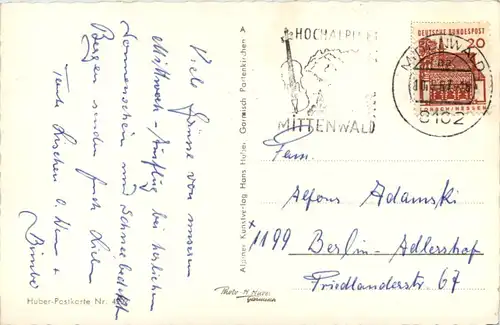 Viele Grüsse von unserem
Mittwoch-Ausflug bei herrlichem
Sonnenschein und schneebedeckten
Bergen senden Euch Lieben
Tante Lieschen
Bimbo
Huber-Postkarte Nr.
Alpiner Kunstverlag Hans Huber Garmisch-Partenkirchen A
HOCHALPINE
MITTENWALD
DEUTSCHE BUNDESPOST
20
LORSCH/HESSEN
MITTENWALD
8102
Fam.
Alfons Adamski
x 1199 Berlin-Adlershof
Friedlanderstr. 67
Photo-H. Huber
Garmisch